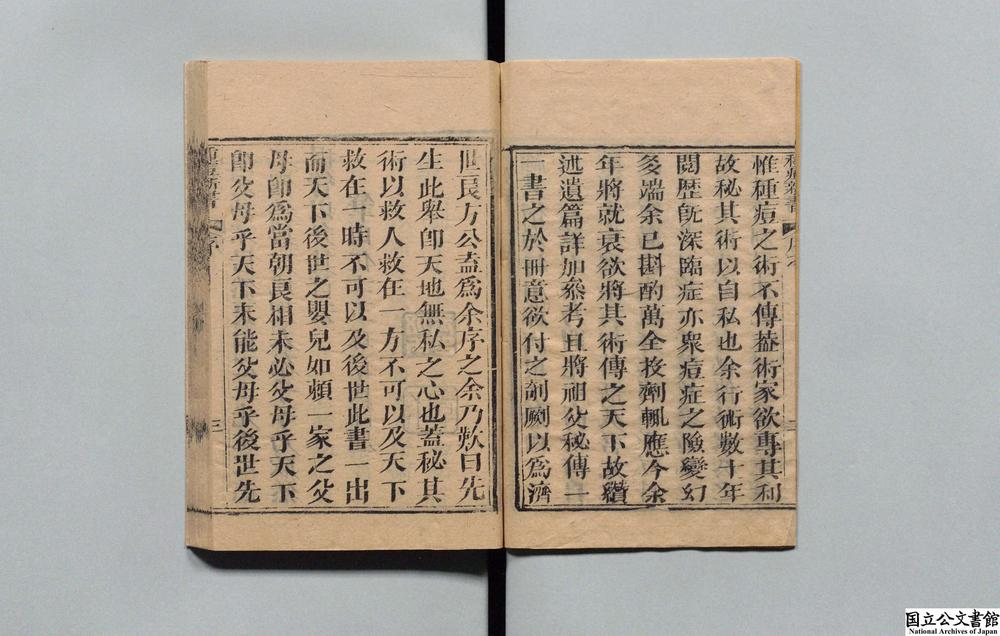 惟種痘之術不傳葢術家欲專其利
故秘其術以自私也余行術數十年
閱歷旣深臨症亦衆痘症之險變幻
多端余已斟酌萬全投劑輒應今余
年將就衰欲將其術傳之天下故纘
述遺篇詳加叅考且將祖父秘傳一
一書之於冊意欲付之剞劂以爲濟
世良方公盍爲余序之余乃歎曰先
生此舉卽天地無私之心也蓋秘其
術以救人救在一方不可以及天下
救在一時不可以及後世此書一出
而天下後世之嬰兒如賴一家之父
母卽爲當朝良相未必父母乎天下
卽父母乎天下未能父母乎後世先
種痘新書
序
三
国立公文書館
National Archives of Japan